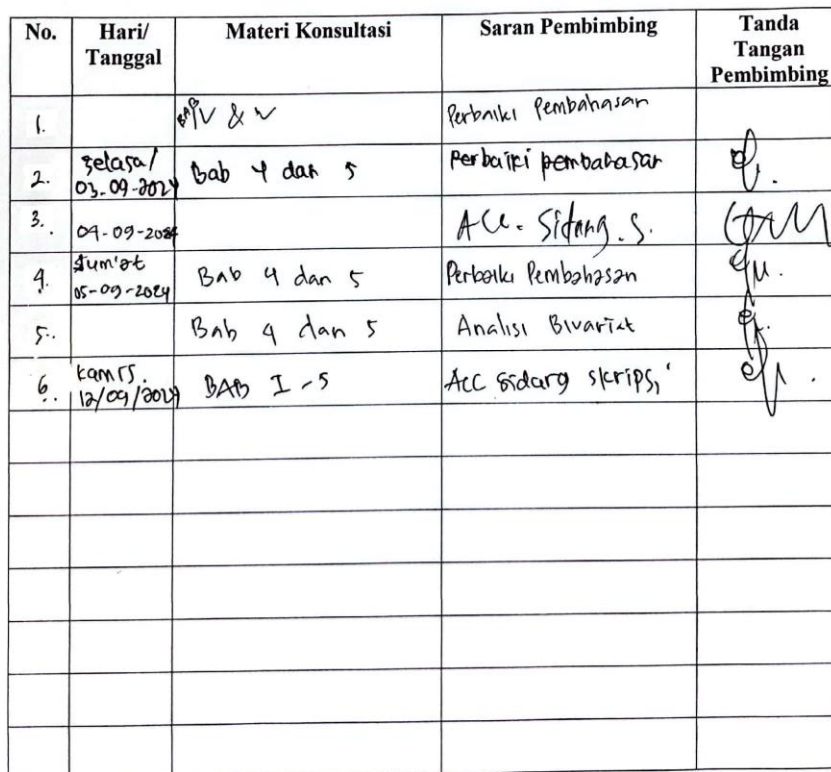 No. Hari/ Tanggal Materi Konsultasi Saran Pembimbing Tanda Tangan Pembimbing
1. BAB IV & V Perbaiki Pembahasan
2. Selasa/ 03-09-2024 Bab 4 dan 5 Perbaiki pembahasan
3. 04-09-2024 ACC. Sidang. S.
4. Jum'at 05-09-2024 Bab 4 dan 5 Perbaiki Pembahasan
5. Bab 4 dan 5 Analisi Bivariat
6. Kamis. 12/09/2024 BAB I - 5 Acc sidang skripsi